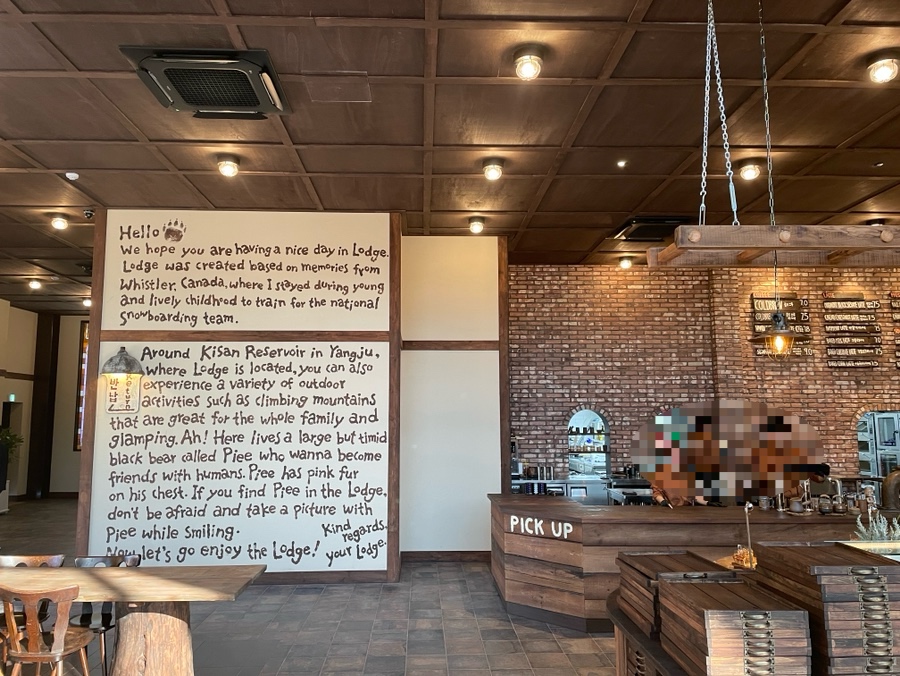 Hello
We hope you are having a nice day in Lodge.
Lodge was created based on memories from
Whistler, Canada, where I stayed during young
and lively childhood to train for the national
Snowboarding team.
Around Kisan Reservoir in Yangju,
where Lodge is located, you can also
experience a variety of outdoor
activities such as climbing mountains
that are great for the whole family and
glamping. Ah! Here lives a large but timid
black bear called Piee who wanna become
friends with humans. Piee has pink fur
on his chest. If you find Piee in the Lodge,
don't be afraid and take a picture with
Piee while smiling.
Now let's go enjoy the Lodge!
Kind regards.
your Lodge.
반납
Return
PICK UP